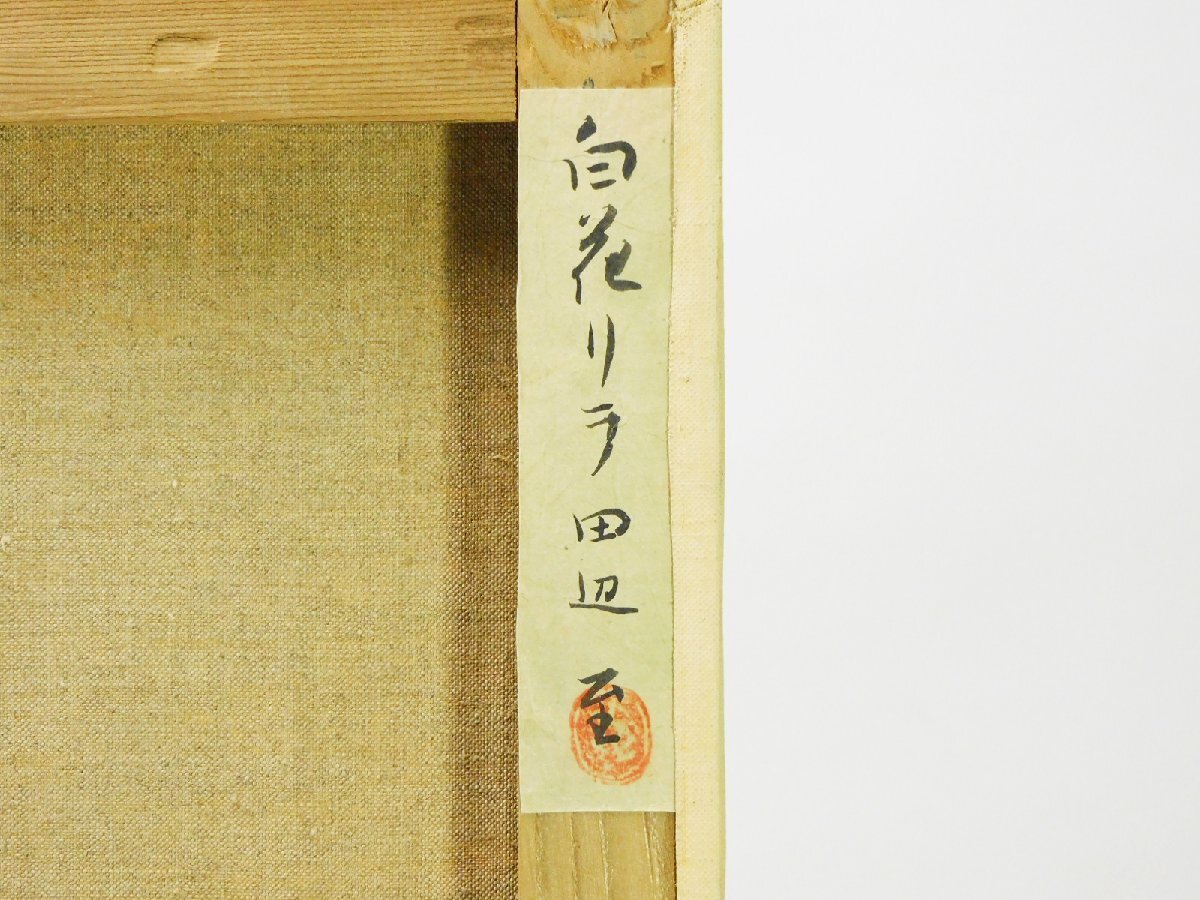 白花リラ 田辺 至